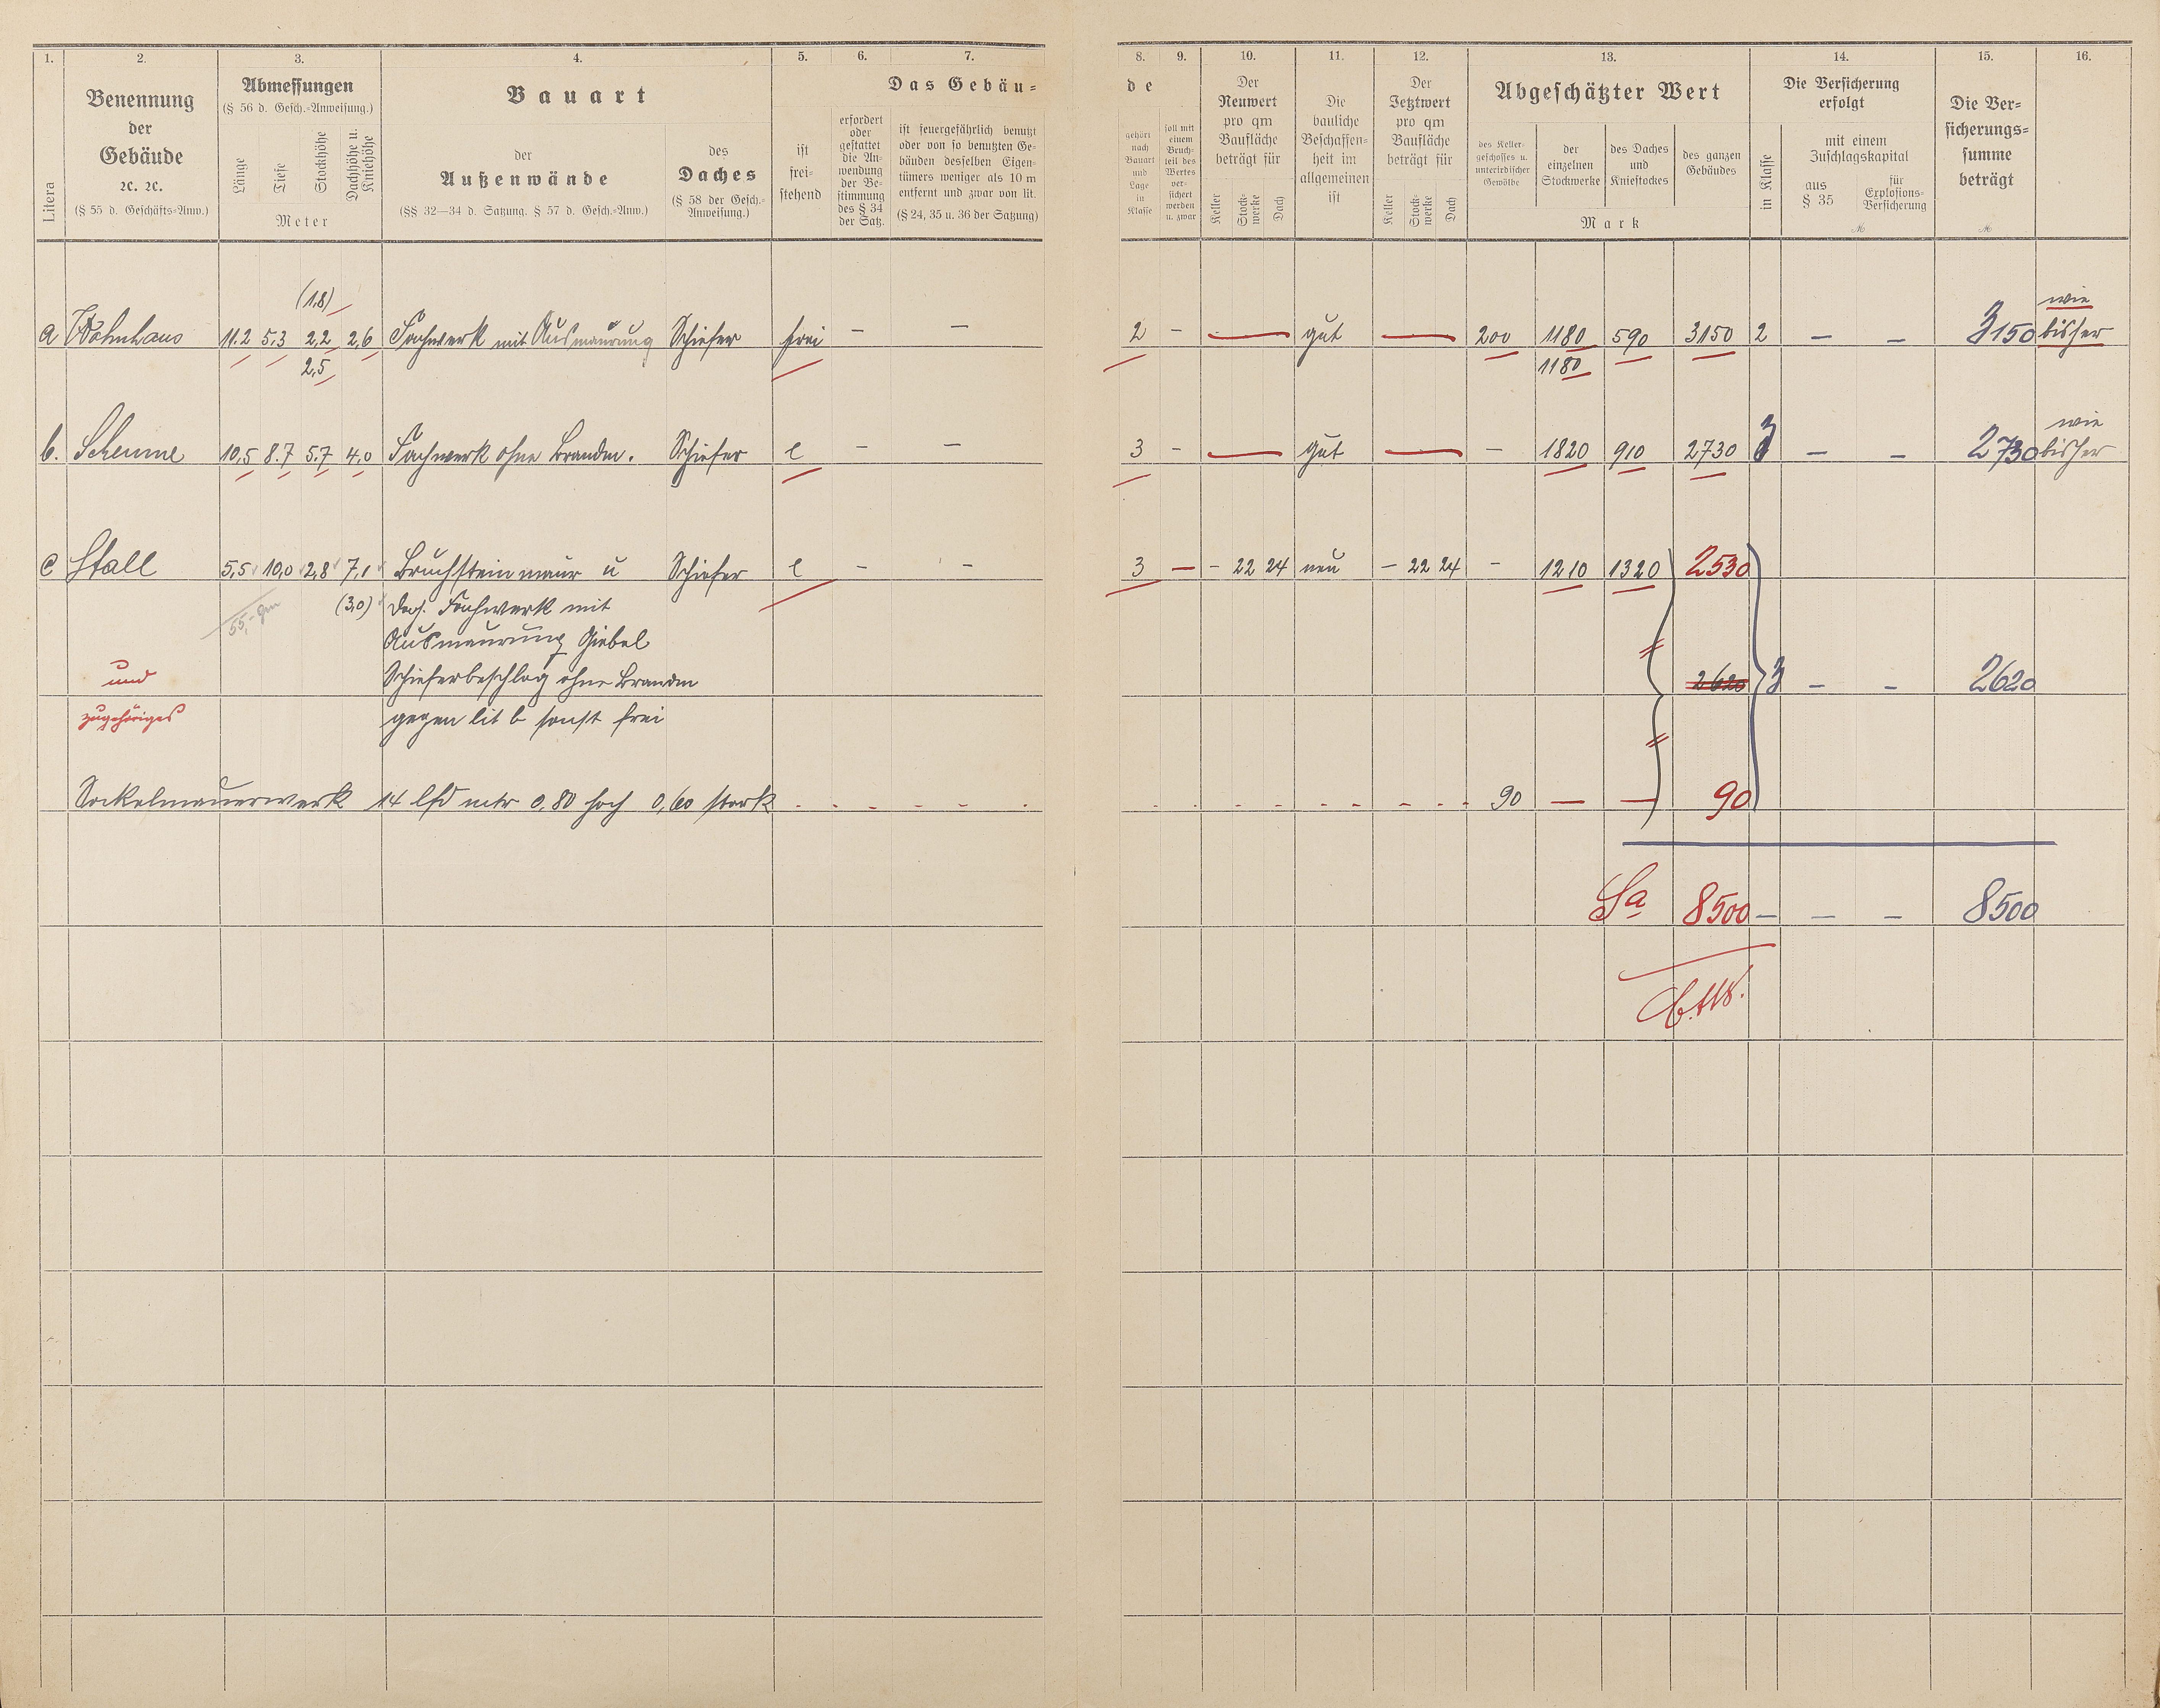 1. 2. 3. 4. 5. 6. 7. 8. 9. 10. 11. 12. 13. 14. 15. 16.
Litera
Benennung
der
Gebäude
ꝛc. ꝛc.
(§ 55 d. Geschäfts-Anw.)
Abmessungen
(§ 56 d. Gesch.-Anweisung.)
Länge
Tiefe
Stockhöhe
Dachhöhe u.
Kniehöhe
Meter
Bauart
der
Außenwände
(§§ 32—34 d. Satzung. § 57 d. Gesch.-Anw.)
des
Daches
(§ 58 der Gesch.-
Anweisung.)
Das Gebäu-
ist
frei-
stehend
erfordert
oder
gestattet
die An-
wendung
der Be-
stimmung
des § 34
der Satz.
ist feuergefährlich benutzt
oder von so benutzten Ge-
bäuden desselben Eigen-
tümers weniger als 10 m
entfernt und zwar von lit.
(§ 24, 35 u. 36 der Satzung)
de
gehört
nach
Bauart
und
Lage
in
Klasse
soll mit
einem
Bruch-
teil des
Wertes
ver-
sichert
werden
u. zwar
Der
Neuwert
pro qm
Baufläche
beträgt für
Keller
Stock-
werke
Dach
Die
bauliche
Beschaffen-
heit im
allgemeinen
ist
Der
Jetztwert
pro qm
Baufläche
beträgt für
Keller
Stock-
werke
Dach
Abgeschätzter Wert
des Keller-
geschosses u.
unterirdischer
Gewölbe
der
einzelnen
Stockwerke
des Daches
und
Kniestockes
des ganzen
Gebäudes
Mark
Die Versicherung
erfolgt
in Klasse
mit einem
Zuschlagskapital
aus
§ 35
für
Explosions-
Versicherung
M
Die Ver-
sicherungs-
summe
beträgt
M
(1,8) wie
a Wohnhaus 11.2 5.3 2,2 2,6 Fachwerk mit Ausmaurung Schiefer frei — — 2 - — gut — 200 1180 590 3150 2 — — 3150 bisher
2,5 1180
wie
b. Scheune 10,5 8.7 5.7 4,0 Fachwerk ohne Brandm. Schiefer l — — 3 - — gut — - 1820 910 2730 3 — — 2730 bisher
c Stall 5,5 10,0 2,8 7,1 Bruchstein maur u Schiefer l - - 3 — - 22 24 neu - 22 24 - 1210 1320 2530
55,- qm (3,0) Fachwerk mit
Ausmaurung Giebel
und Schieferbeschlag ohne Brandm 2620 3 — — 2620
zugehöriges gegen lit b sonst frei
Sockelmauerwerk 14 lfd mtr 0,80 hoch 0,60 stark 90 — — 90
Sa 8500 — — — 8500